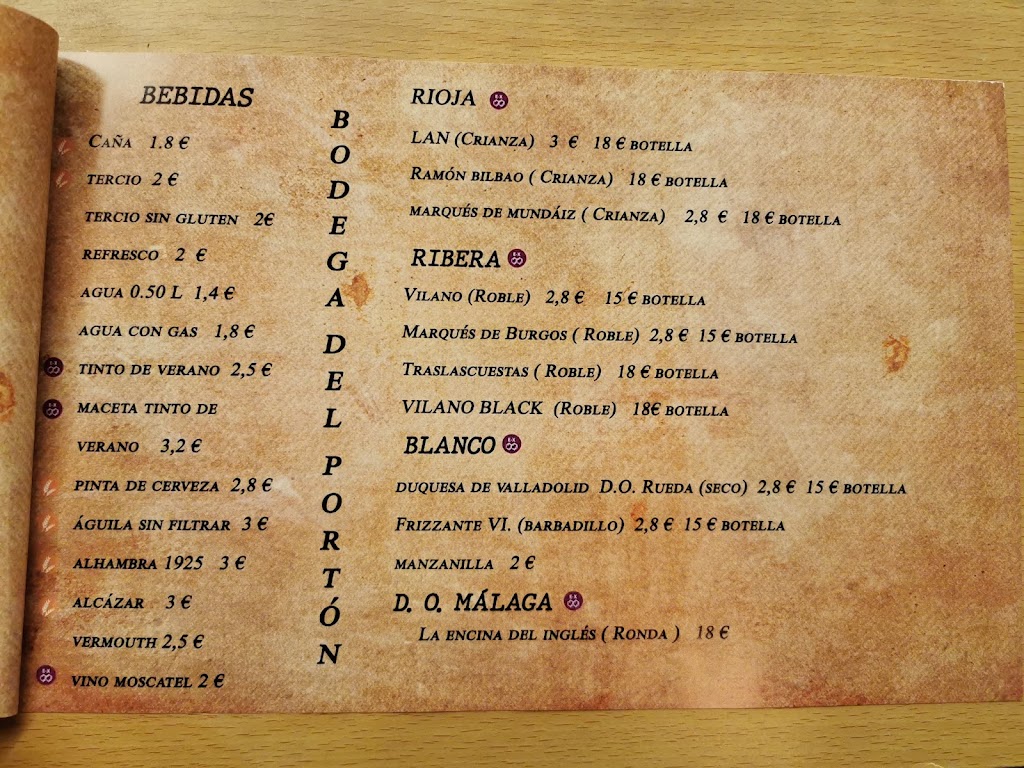 BEBIDAS
CAÑA 1.8 €
TERCIO 2 €
TERCIO SIN GLUTEN 2€
REFRESCO 2 €
AGUA 0.50 L 1,4 €
AGUA CON GAS 1,8 €
TINTO DE VERANO 2,5 €
MACETA TINTO DE
VERANO 3,2 €
PINTA DE CERVEZA 2,8 €
ÁGUILA SIN FILTRAR 3 €
ALHAMBRA 1925 3 €
ALCÁZAR 3 €
VERMOUTH 2,5 €
VINO MOSCATEL 2 €
BODEGA DEL PORTÓN
RIOJA
LAN (CRIANZA) 3 € 18 € BOTELLA
RAMÓN BILBAO ( CRIANZA) 18 € BOTELLA
MARQUÉS DE MUNDÁIZ ( CRIANZA) 2,8 € 18 € BOTELLA
RIBERA
VILANO (ROBLE) 2,8 € 15 € BOTELLA
MARQUÉS DE BURGOS ( ROBLE) 2,8 € 15 € BOTELLA
TRASLASCUESTAS ( ROBLE) 18 € BOTELLA
VILANO BLACK (ROBLE) 18€ BOTELLA
BLANCO
DUQUESA DE VALLADOLID D.O. RUEDA (SECO) 2,8 € 15 € BOTELLA
FRIZZANTE VI. (BARBADILLO) 2,8 € 15 € BOTELLA
MANZANILLA 2 €
D. O. MÁLAGA
LA ENCINA DEL INGLÉS ( RONDA ) 18 €